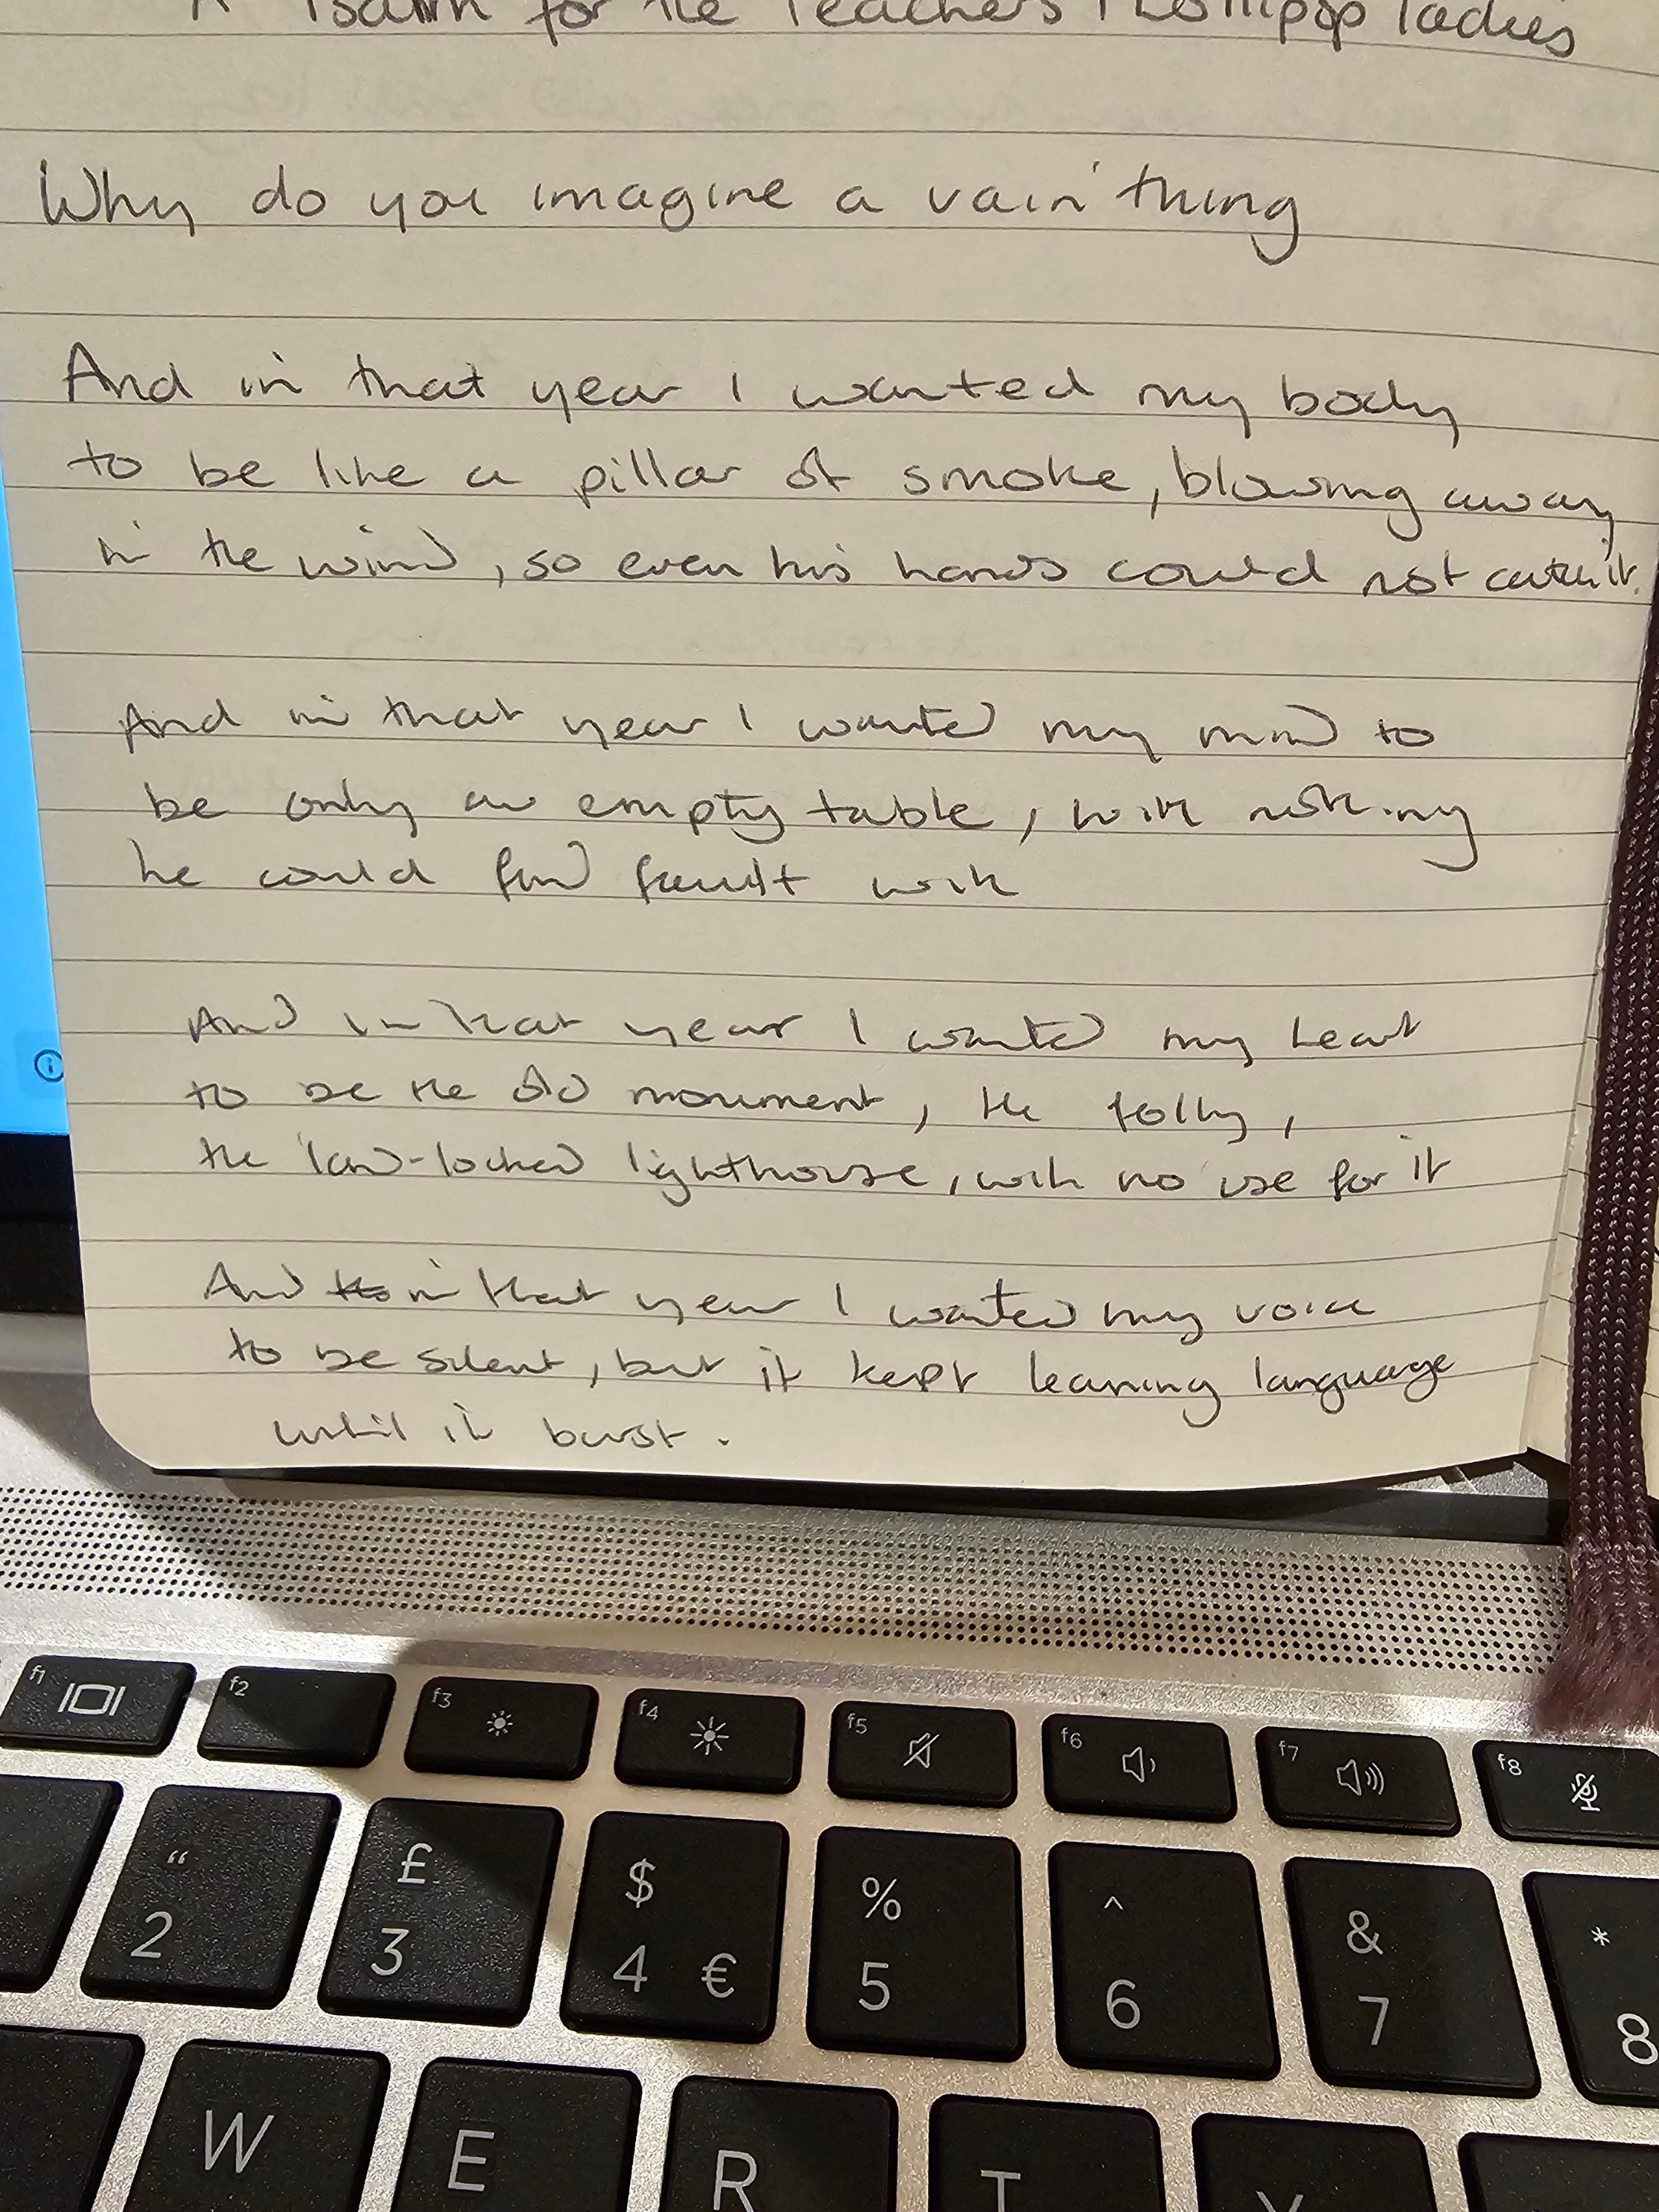 A Psalm for the Teachers + Lollipop ladies
Why do you imagine a vain thing
And in that year I wanted my body
to be like a pillar of smoke, blowing away
in the wind, so even his hands could not catch it.
And in that year I wanted my mind to
be only an empty table, with nothing
he could find fault with
And in that year I wanted my heart
to be the old monument, the folly,
the land-locked lighthouse, with no use for it
And in that year I wanted my voice
to be silent, but it kept learning language
until it burst.
f1 f2 f3 f4 f5 f6 f7 f8
“ £ $ % ^ & *
2 3 4 € 5 6 7 8
W E R T Y